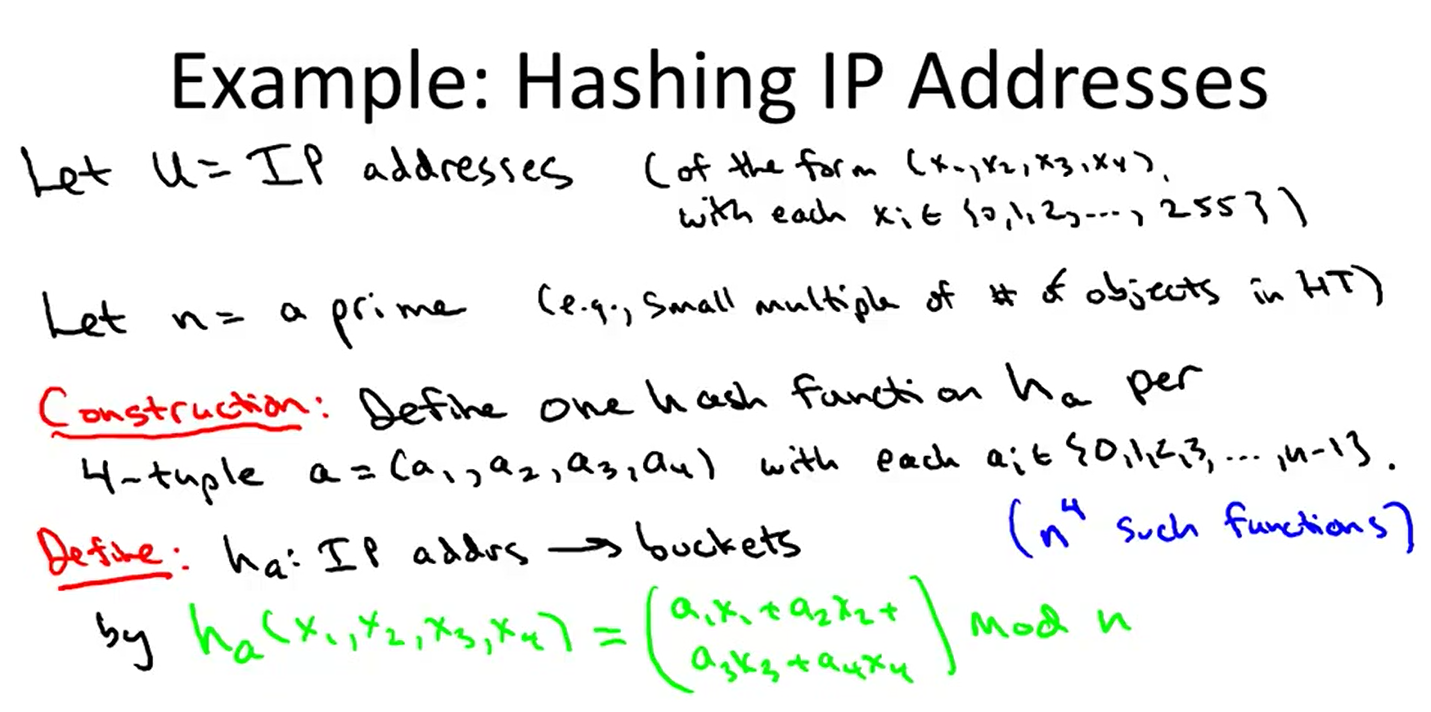 Example: Hashing IP Addresses
Let U = IP addresses (of the form (x₁,x₂,x₃,x₄),
with each xᵢ ∈ {0,1,2,…,255})
Let n = a prime (e.g., small multiple of # of objects in HT)
Construction: Define one hash function hₐ per
4-tuple a = (a₁,a₂,a₃,a₄) with each aᵢ ∈ {0,1,2,3,…,n-1}.
(n⁴ such functions)
Define: hₐ: IP addrs → buckets
by hₐ(x₁,x₂,x₃,x₄) = (a₁x₁ + a₂x₂ +
a₃x₃ + a₄x₄) mod n